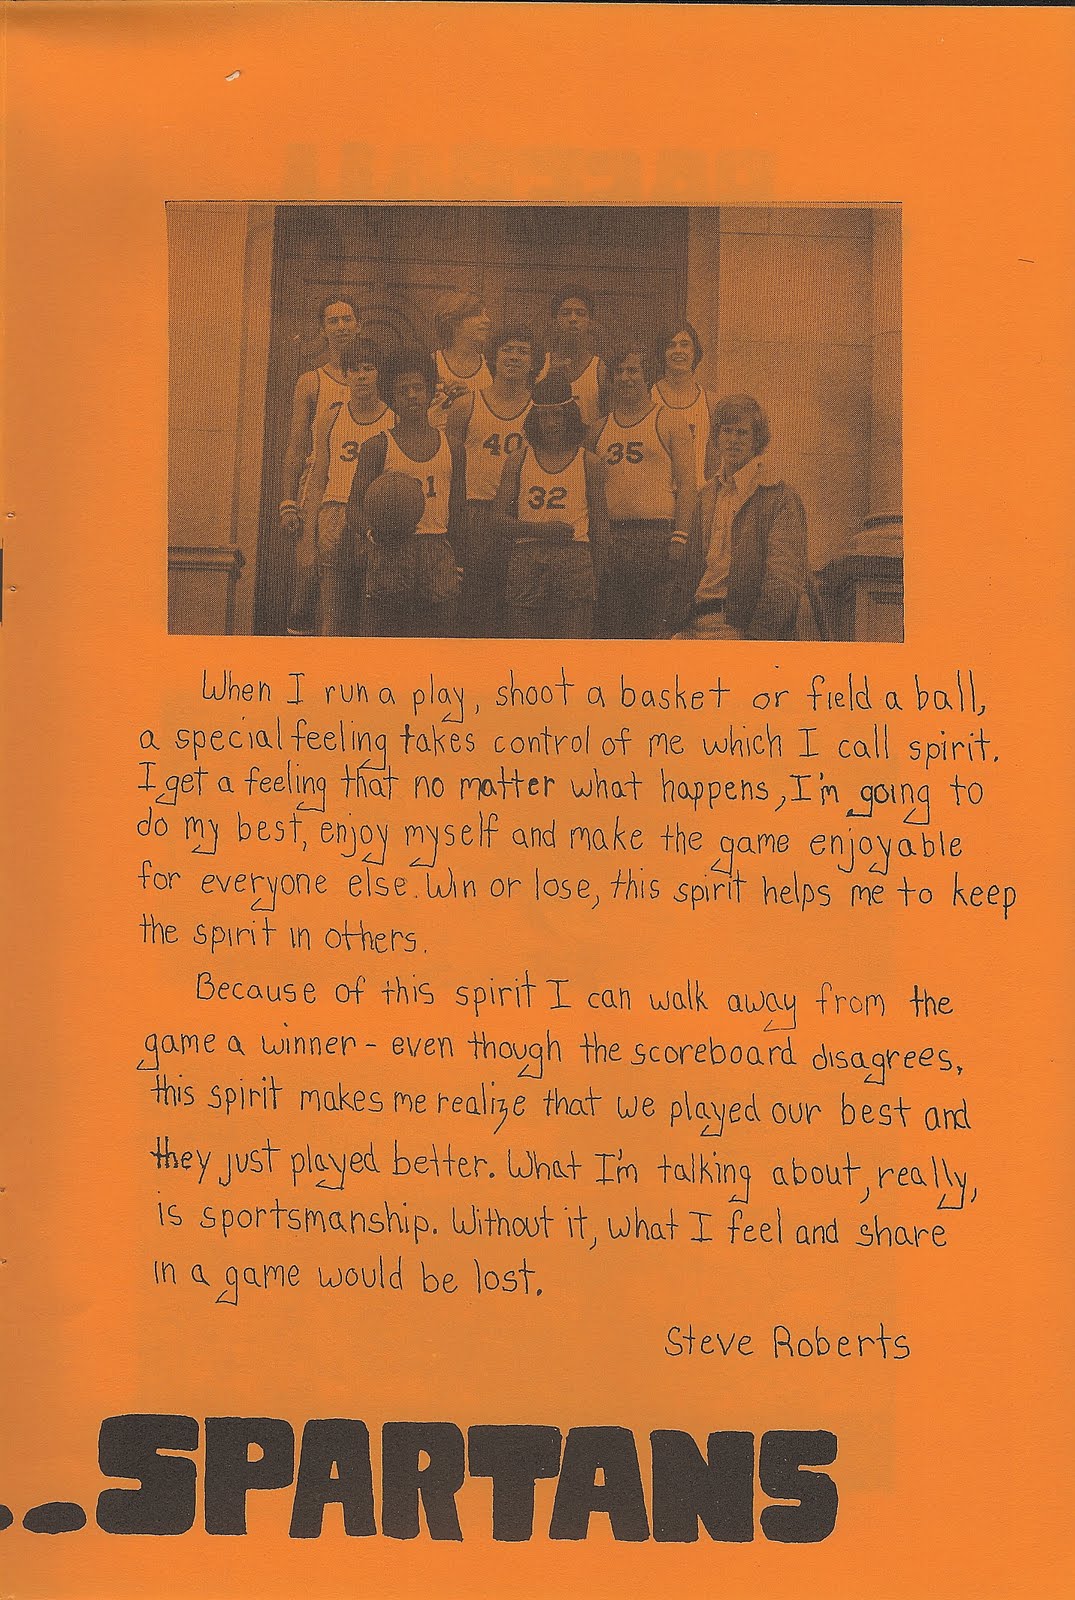 40
35
32
When I run a play, shoot a basket or field a ball,
a special feeling takes control of me which I call spirit.
I get a feeling that no matter what happens, I'm going to
do my best, enjoy myself and make the game enjoyable
for everyone else. Win or lose, this spirit helps me to keep
the spirit in others.
Because of this spirit I can walk away from the
game a winner - even though the scoreboard disagrees,
this spirit makes me realize that we played our best and
they just played better. What I'm talking about, really,
is sportsmanship. Without it, what I feel and share
in a game would be lost.
Steve Roberts
..SPARTANS